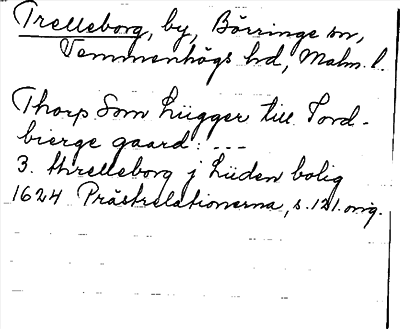 Trelleborg, by, Börringe sn,
Vemmenhögs hd, Malm. l.
Thorp. Som Lügger till Tord-
bierge gaard: ---
3. threlleborg j Lüden bolig
1624 Prästrelationerna, s. 121. orig.